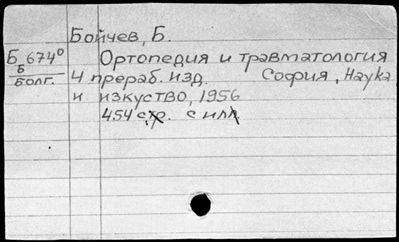 Бойчев, Б.
Б 674⁰ Ортопедия и травматология
Б
Болг. 4 прераб. изд. София, Наука
и изкуство, 1956
454 стр. с илл